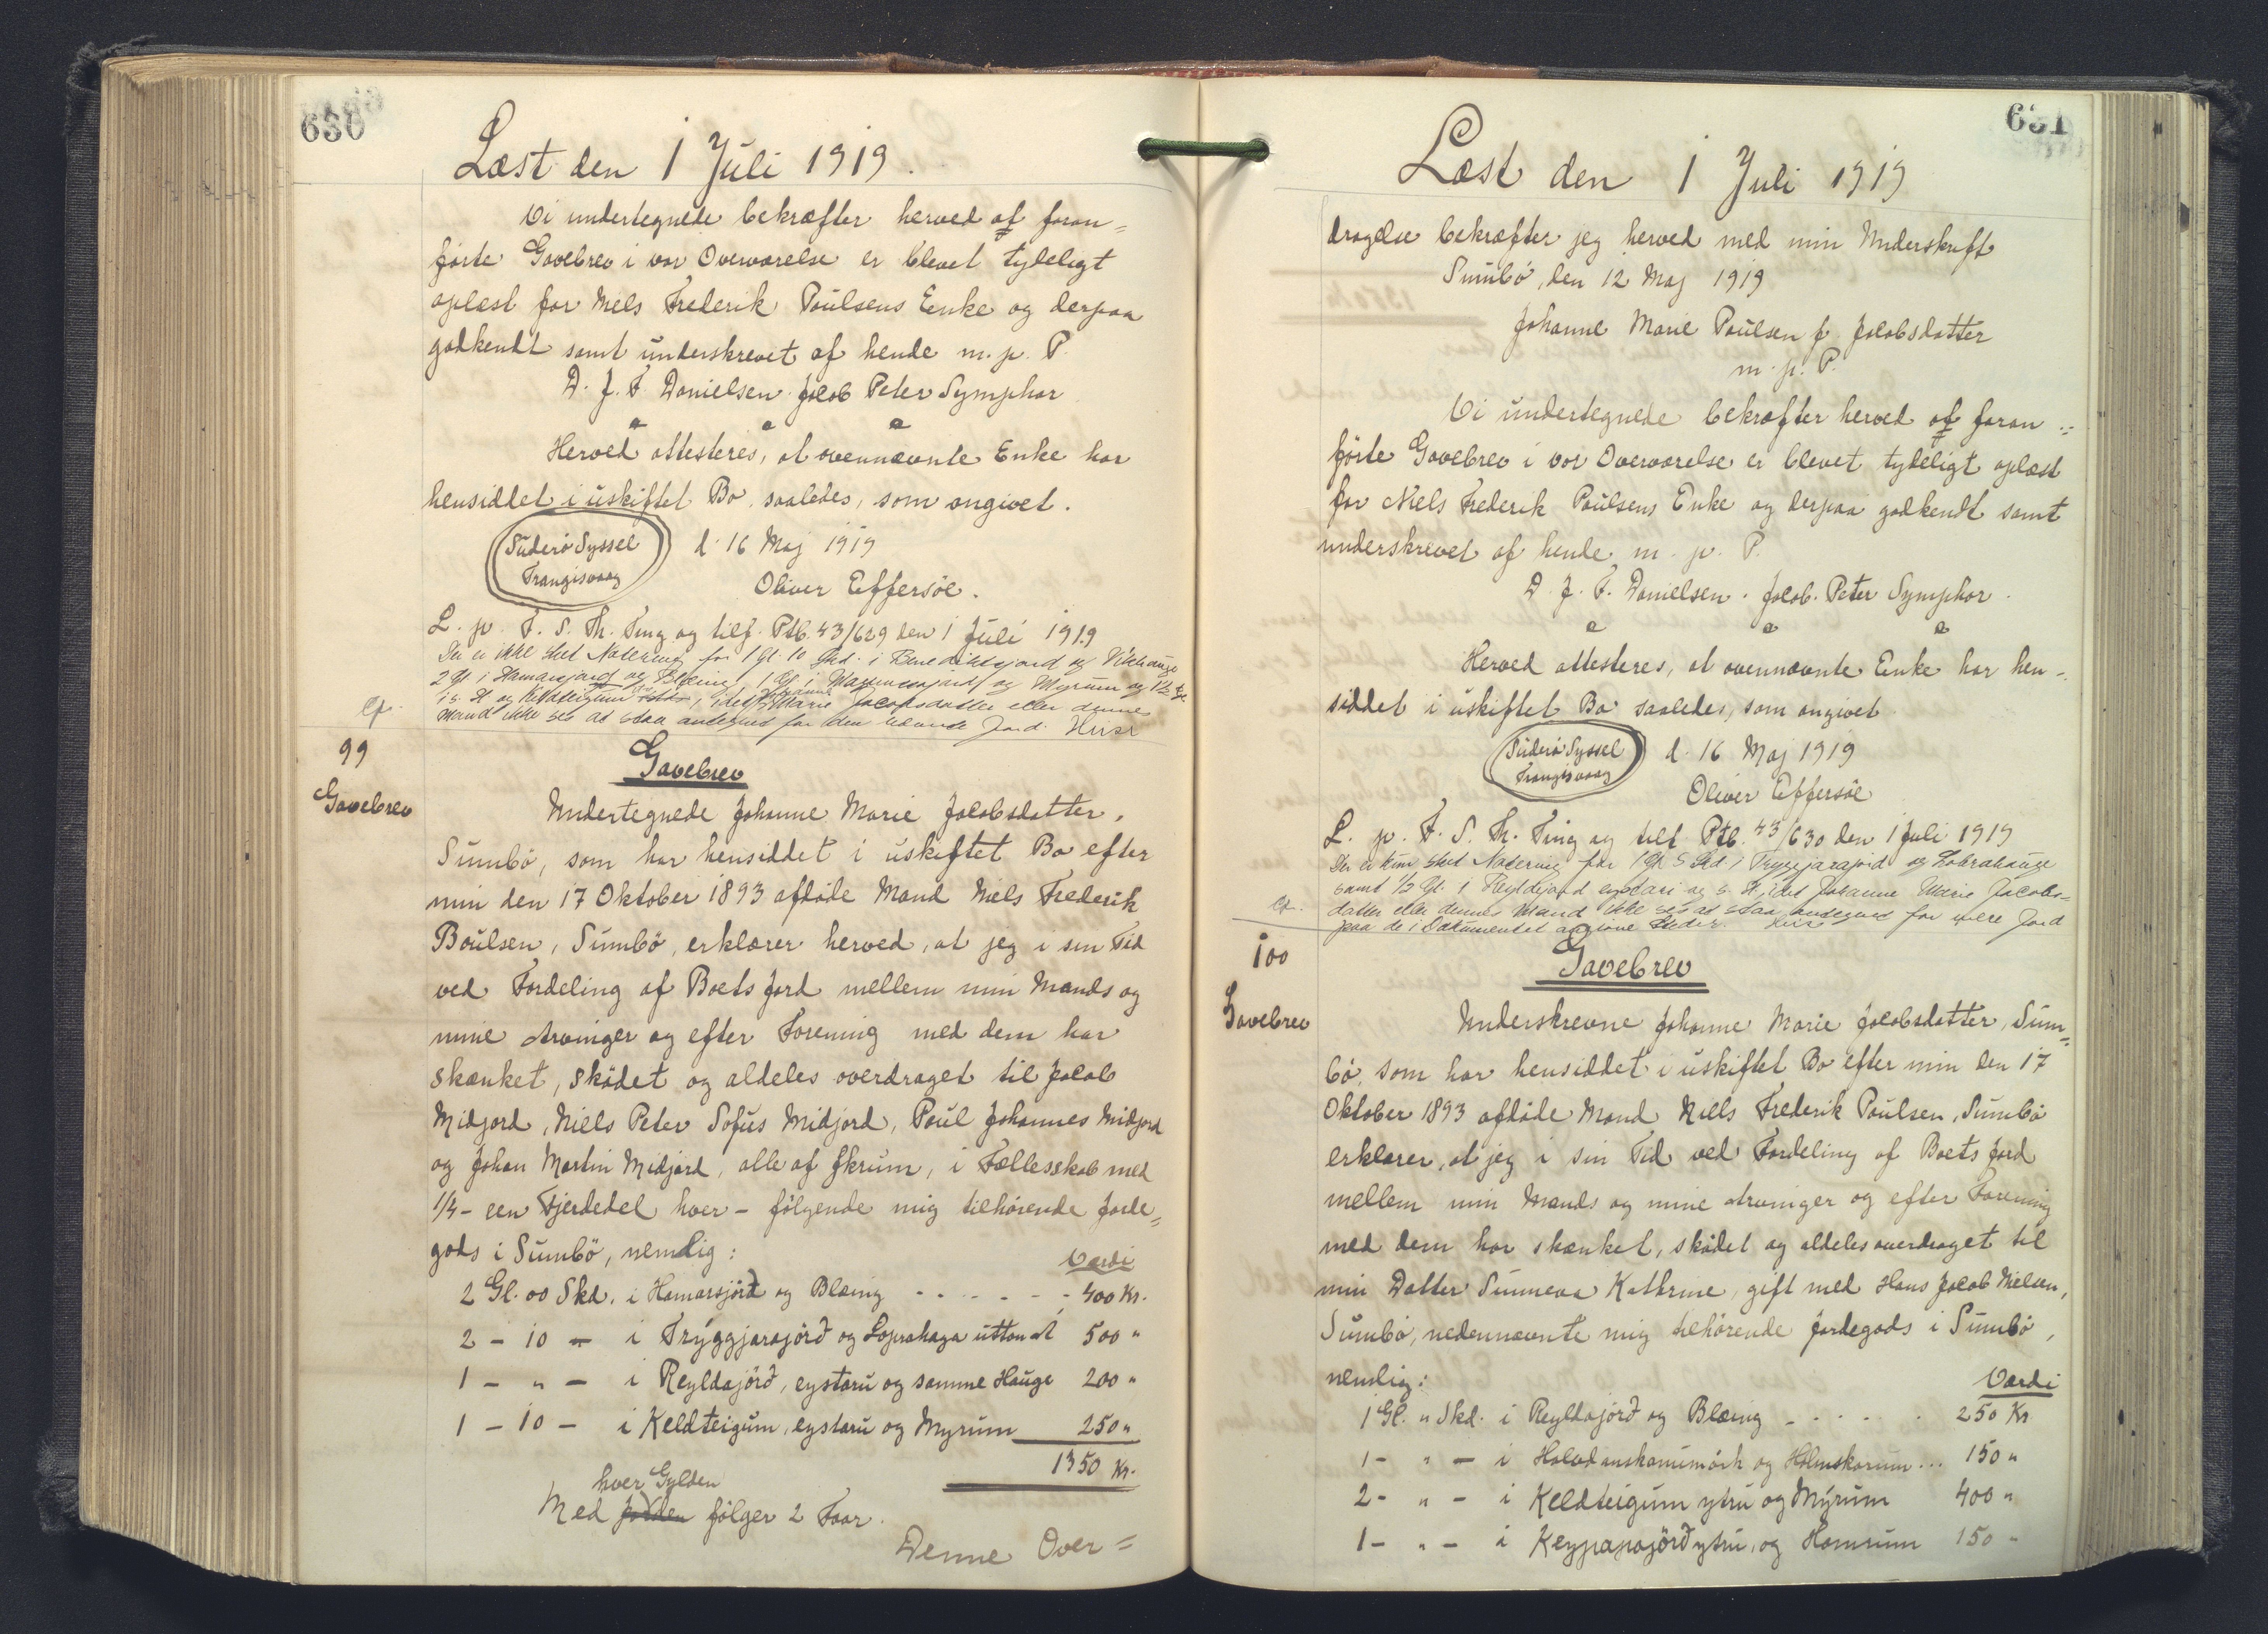 630
Læst den 1 Juli 1919.
Vi undertegnede bekræfter herved at foran=
førte Gavebrev i vor Overværelse er blevet tydeligt
oplæst for Niels Frederik Poulsens Enke og derpaa
godkendt samt underskrevet af hende m. p. P.
D. J. F. Danielsen. Jacob Peter Symphor
Herved attesteres, at ovennævnte Enke har
hensiddet i uskiftet Bo, saaledes, som angivet.
Suderø Syssel
Trangisvaag
d. 16 Maj 1919
Oliver Effersøe.
L. p. F. S. Th. Ting og tilf. Ptb. 43/629 den 1 Juli 1919
Der er ikke sket Notering for 1 Gl. 10 Skd. i Benediktsjord og Vikhauge
2 Gl i Hamarsjord og Blæing, 1 Gl i
og Myrum og 1½ Gl.
i s. H og Keldteigum, idet Johanne Marie Jacobsdatter eller dennes
Mand ikke ses at staa antegnet for den nævnte Jord.
99
Gavebrev
Gavebrev
Undertegnede Johanne Marie Jacobsdatter,
Sumbø, som har hensiddet i uskiftet Bo efter
min den 17 Oktober 1893 afdøde Mand Niels Frederik
Poulsen, Sumbø, erklærer herved, at jeg i sin Tid
ved Fordeling af Boets Jord mellem min Mands og
mine Arvinger og efter Forening med dem har
skænket, skødet og aldeles overdraget til Jacob
Midjord, Niels Peter Sofus Midjord, Poul Johannes Midjord
og Johan Martin Midjord, alle af Akrum, i Fællesskab med
1/4 - een Fjerdedel hver - følgende mig tilhørende Jorde=
gods i Sumbø, nemlig:
Værdi
2 Gl. 00 Skd. i Hamarsjørð og Blæing - - - - - - 400 Kr.
2 - 10 - i Trýggjarajørð og Loprahaga uttan á 500 "
1 - " - i Reyldajørð, eystaru og samme Hauge 200 "
1 - 10 - i Keldteigum, eystaru og Myrum 250 "
1350 Kr.
hver Gylden
Med Jorden følger 2 Faar.
Denne Over=
631
Læst den 1 Juli 1919
dragelse bekræfter jeg herved med min Underskrift
Sumbø, den 12 Maj 1919
Johanne Marie Poulsen f. Jacobsdatter
m. p. P.
Vi undertegnede bekræfter herved at foran=
førte Gavebrev i vor Overværelse er blevet tydeligt oplæst
for Niels Frederik Poulsens Enke og derpaa godkendt samt
underskrevet af hende m. p. P.
D. J. F. Danielsen. Jacob. Peter Symphor.
Herved attesteres, at ovennævnte Enke har hen-
siddet i uskiftet Bo saaledes, som angivet
Suderø Syssel
Trangisvaag
d. 16 Maj 1919
Oliver Effersøe
L. p. F. S. Th. Ting og tilf Ptb. 43/630 den 1 Juli 1919
Der er kun sket Notering for 1 Gl. 5 Skd i Tryggjarajord og Lobrahauge
samt 1/2 Gl. i Reyldejord eystari og s. H, idet Johanne Marie Jacobs=
datter eller dennes Mand ikke ses at staa antegnet for mere Jord
paa de i Dokumentet angivne Steder.
100
Gavebrev
Gavebrev
Underskrevne Johanne Marie Jacobsdatter, Sum=
bø, som har hensiddet i uskiftet Bo efter min den 17
Oktober 1893 afdøde Mand Niels Frederik Poulsen, Sumbø
erklærer, at jeg i sin Tid ved Fordeling af Boets Jord
mellem min Mands og mine Arvinger og efter Forening
med dem har skænket, skødet og aldeles overdraget til
min Datter Sunneva Kathrine, gift med Hans Jacob Nielsen,
Sumbø, nedennævnte mig tilhørende Jordegods i Sumbø,
nemlig:
Værdi
1 Gl. " Skd. i Reyldajørð og Blæing - - - - - 250 Kr
1 - " - i Halvdanskanumørk og Hólmskorum ... 150 "
2 - " - i Keldteigum ytru og Mýrum 400 "
1 - " - i Keypapajørð ytru, og Hamrum 150 "